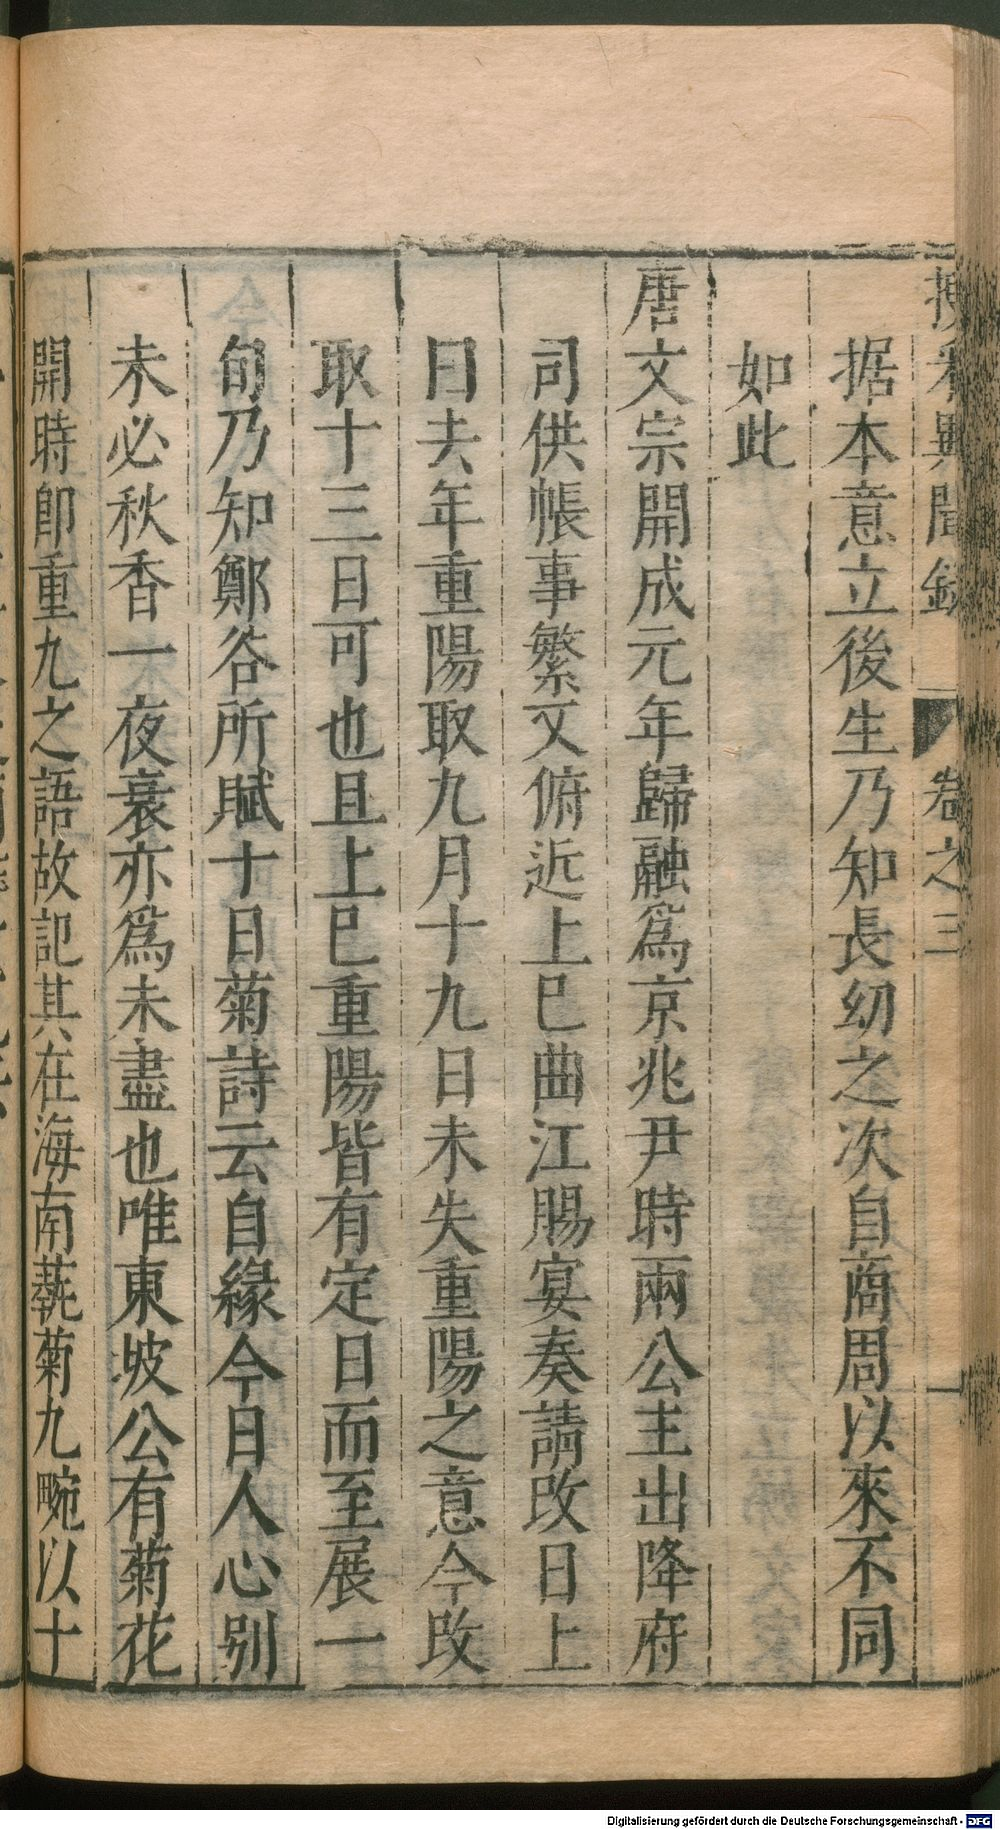 搜采異聞錄 卷之三
据本意立後生乃知長幼之次自商周以來不同
如此
唐文宗開成元年歸融爲京兆尹時兩公主出降府
司供帳事繁又俯近上巳曲江賜宴奏請改日上
曰去年重陽取九月十九日未失重陽之意今改
取十三日可也且上巳重陽皆有定日而至展一
旬乃知鄭谷所賦十日菊詩云自緣今日人心別
未必秋香一夜衰亦爲未盡也唯東坡公有菊花
開時卽重九之語故記其在海南蓺菊九畹以十
Digitalisierung gefördert durch die Deutsche Forschungsgemeinschaft - DFG